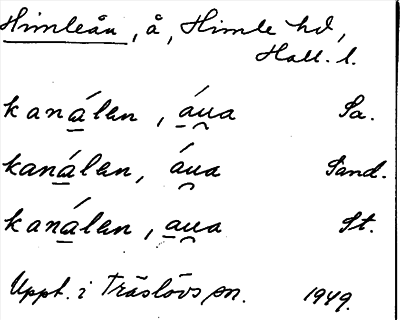 Himleån, å, Himle hd,
Hall. l.
kanálen, áua Sa.
kanálen, áua Sand.
kanálen, aua St.
Uppt. i Träslövs sn. 1949.